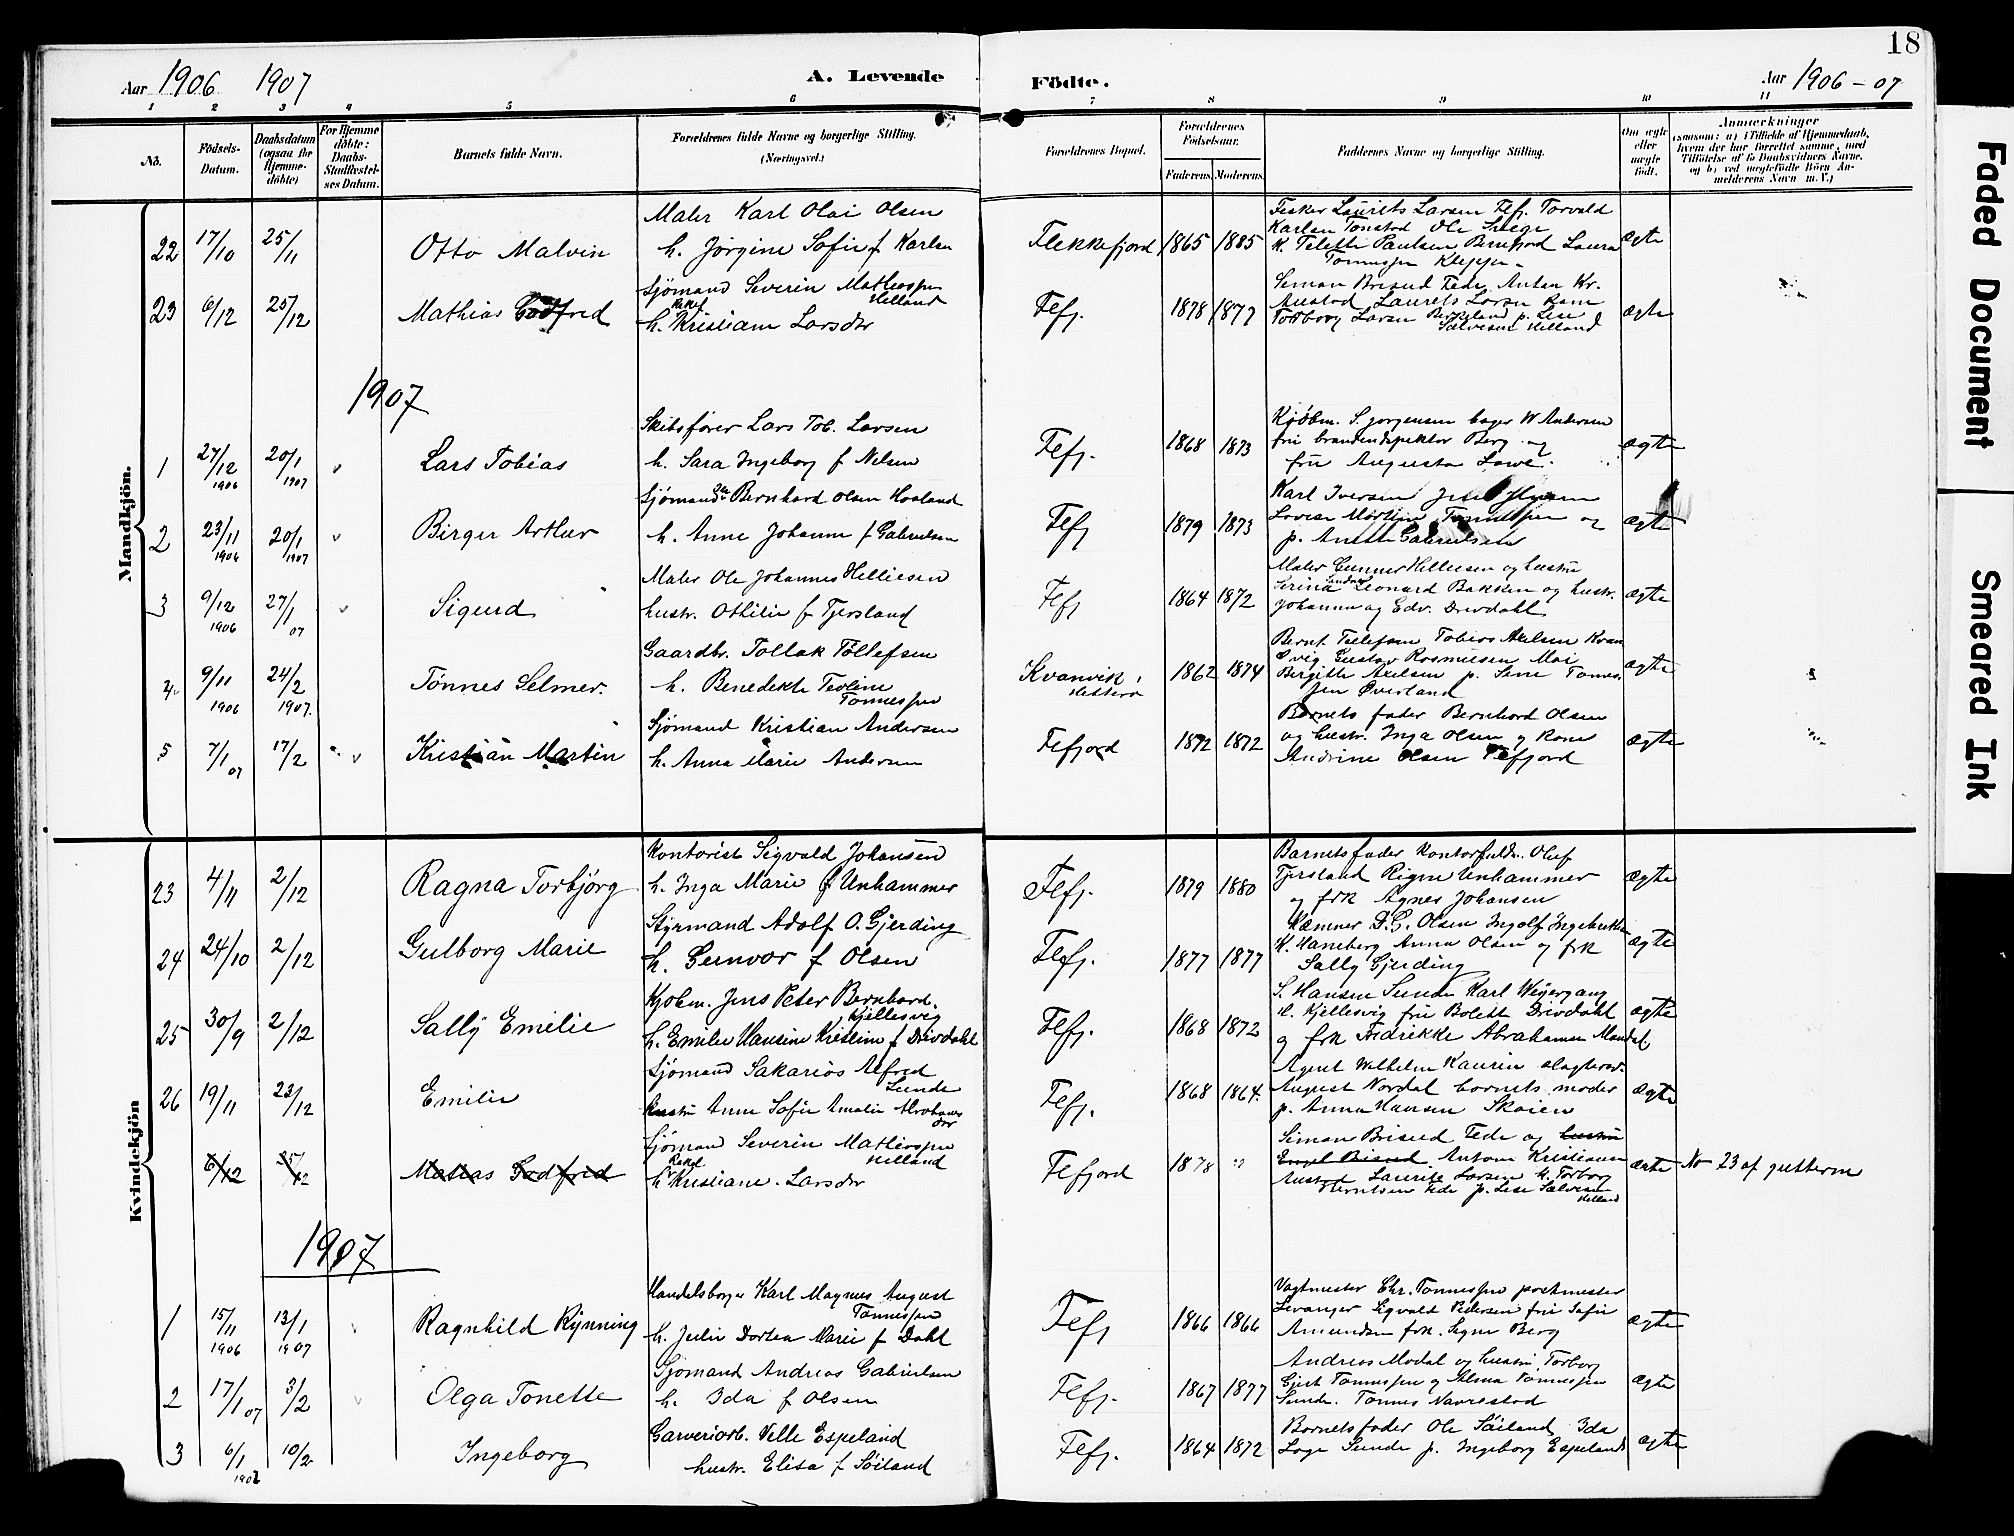 18
Aar 1906 1907 A. Levende Födte. Aar 1906 - 07
1 2 3 4 5 6 7 8 9 10 11
No. Födsels-Datum. Daabsdatum (ogsaa for Hjemme-döbte) For Hjemme döbte: Daabs-Stadfæstel-ses Datum. Barnets fulde Navn. Forældrenes fulde Navne og borgerlige Stilling. (Næringsvei.) Forældrenes Bopæl. Forældrenes Födselsaar. Faderens. Moderens. Faddernes Navne og borgerlige Stilling. Om ægte eller uægte födt. Anmærkninger
(saasom: a) i Tilfælde af Hjemmedaab, hvem der har forrettet samme, med Tilföielse af to Daabsvidners Navne, og b) ved uægtefödte Börn An-melderens Navn m. V.)
Mandkjön.
22 17/10 25/11 Otto Malvin
Maler Karl Olai Olsen
h. Jörgine Sofie f Karlsen
Flekkefjord 1865 1885
Fisker Laurits Larsen Flfj. Torvald
Karlsen Tonstad Ole
K. Telette Paulsen Laura
ægte
23 6/12 25/12 Mathias Godfred
Sjömand Severin Mathiassen Helland
h. Rakel Kristiane Larsdtr
Flfj. 1878 1877
Simon Bisud Fede Anton Kr.
Austad Laurits Larsen
Torborg Larsen p. Lise
Salvesen Helland
ægte
1907
1 27/12 1906 20/1 1907 Lars Tobias
Skibsförer Lars Tob. Larsen
h. Sara Ingeborg f Nilsen
Flfj. 1868 1873
Kjöbm. S. Jorgensen bager W Andersen
fru brandendspektör Berg og
fru Augusta Lowe.
ægte
2 23/11 1906 20/1 1907 Birger Arthur
Sjömand Bernhard Olsen Hosland
h. Anne Johanne f Gabrielsen
Flfj 1879 1873
Karl Iversen
Lovise Martine Tönnessen og
p. Gabrielsen
ægte
3 9/12 1906 27/1 07 Sigurd
Maler Ole Johannes Helliesen
hustr. Othilie f Tjersland
Flfj 1864 1872
Maler Gunner Helliesen og hustru
Serina Leonard Bakken og hustr.
Johanna og Edv. Drivdahl
ægte
4 9/11 1906 24/2 1907. Tönnes Selmer.
Gaardbr. Tollak Tollefsen
h. Benedikte Teoline
Tönnessen
Kvanvik, 1862 1874
Bernt Tellefsen Tobias Axelsen Kvan
vig Gustav Rasmussen Moi
Bergitte Axelsen p. Sine Tönnes-
sen Överland
ægte
5 7/1 07 17/2 Kristian Martin
Sjömand Kristian Andersen
h. Anna Marie Andersen
Flfjord 1872 1872
Barnets fader Bernhard Olsen
og hustr. Inga Olsen og kone
Andrine Olsen Flfjord
ægte
Kvindekjön
23 4/11 2/12 Ragna Torbjörg
Kontorist Sigvald Johansen
h. Inga Marie f Unhammer
Flfj. 1879 1880
Barnets fader Kontorfuldm. Oluf
Tjersland Rigne Unhammer
og frk Agnes Johansen
ægte
24 24/10 2/12 Gulborg Marie
Styrmand Adolf O. Gjerding
h. Gunvor f Olsen
Flfj. 1877 1877
Kæmner D.G. Olsen Ingolf Ingebrektsen
K. Haneberg Anna Olsen og frk
Sally Gjerding
ægte
25 30/9 2/12 Sally Emilie
Kjöbm. Jens Peter Bernhard.
Kjellesvig
h. Emilie Hansine Kristine f Drivdahl
Flfj. 1868 1872
S. Hansen Sunde Karl Weyergang
H. Kjellesvig fru Bolett Drivdahl
og frk Fredrikke Abrahamsen Mandal
ægte
26 19/11 23/12 Emilie
Sjömand Sakarias Alfred
Sunde
hustru Anne Sofie Amalie Abrahams
dtr
Flfj. 1868 1864.
Agent Wilhelm Kaurin slagter
August Nordal barnets moder
p. Anna Hansen Skoien
ægte
6/12 25/12 Matias Godfred
Sjömand Severin Mathiassen
Helland
h. Rakel Kristiane Larsdtr
Flfjord 1878 "
Simon Bisud Fede og hustru
Engel Bisud Antone Kristiansen
Austad Laurits Larsen K. Torborg
Berntsen Fede p. Lise Salvesen
Helland
ægte No 23 af gutterne
1907
1 15/11 1906 13/1 1907 Ragnhild Rynning
Handelsborger Karl Magnus August
Tönnessen
h. Julie Dortea Marie f Dahl
Flfj 1866 1866
Vagtmester Chr. Tönnessen postmester
Levanger Sigvald Pedersen fru Sofie
Amundsen frk. Signe Berg
ægte
2 17/1 07 3/2 Olga Tonette
Sjömand Andreas Gabrielsen
h. Ida f Olsen
Flfj. 1867 1877
Andreas Modal og hustru Torborg
Gjert Tönnessen og Alma Tönnessen
Sunde. Tönnes Navrestad
ægte
3 6/1 1907 10/2 Ingeborg
Garveriarb. Velle Espeland
hustr. Elisa f Söiland
Flfj. 1864 1872
Barnets fader Ole Söiland Ida
Loge Sunde p. Ingeborg Espeland
ægte
Faded Document
Smeared Ink